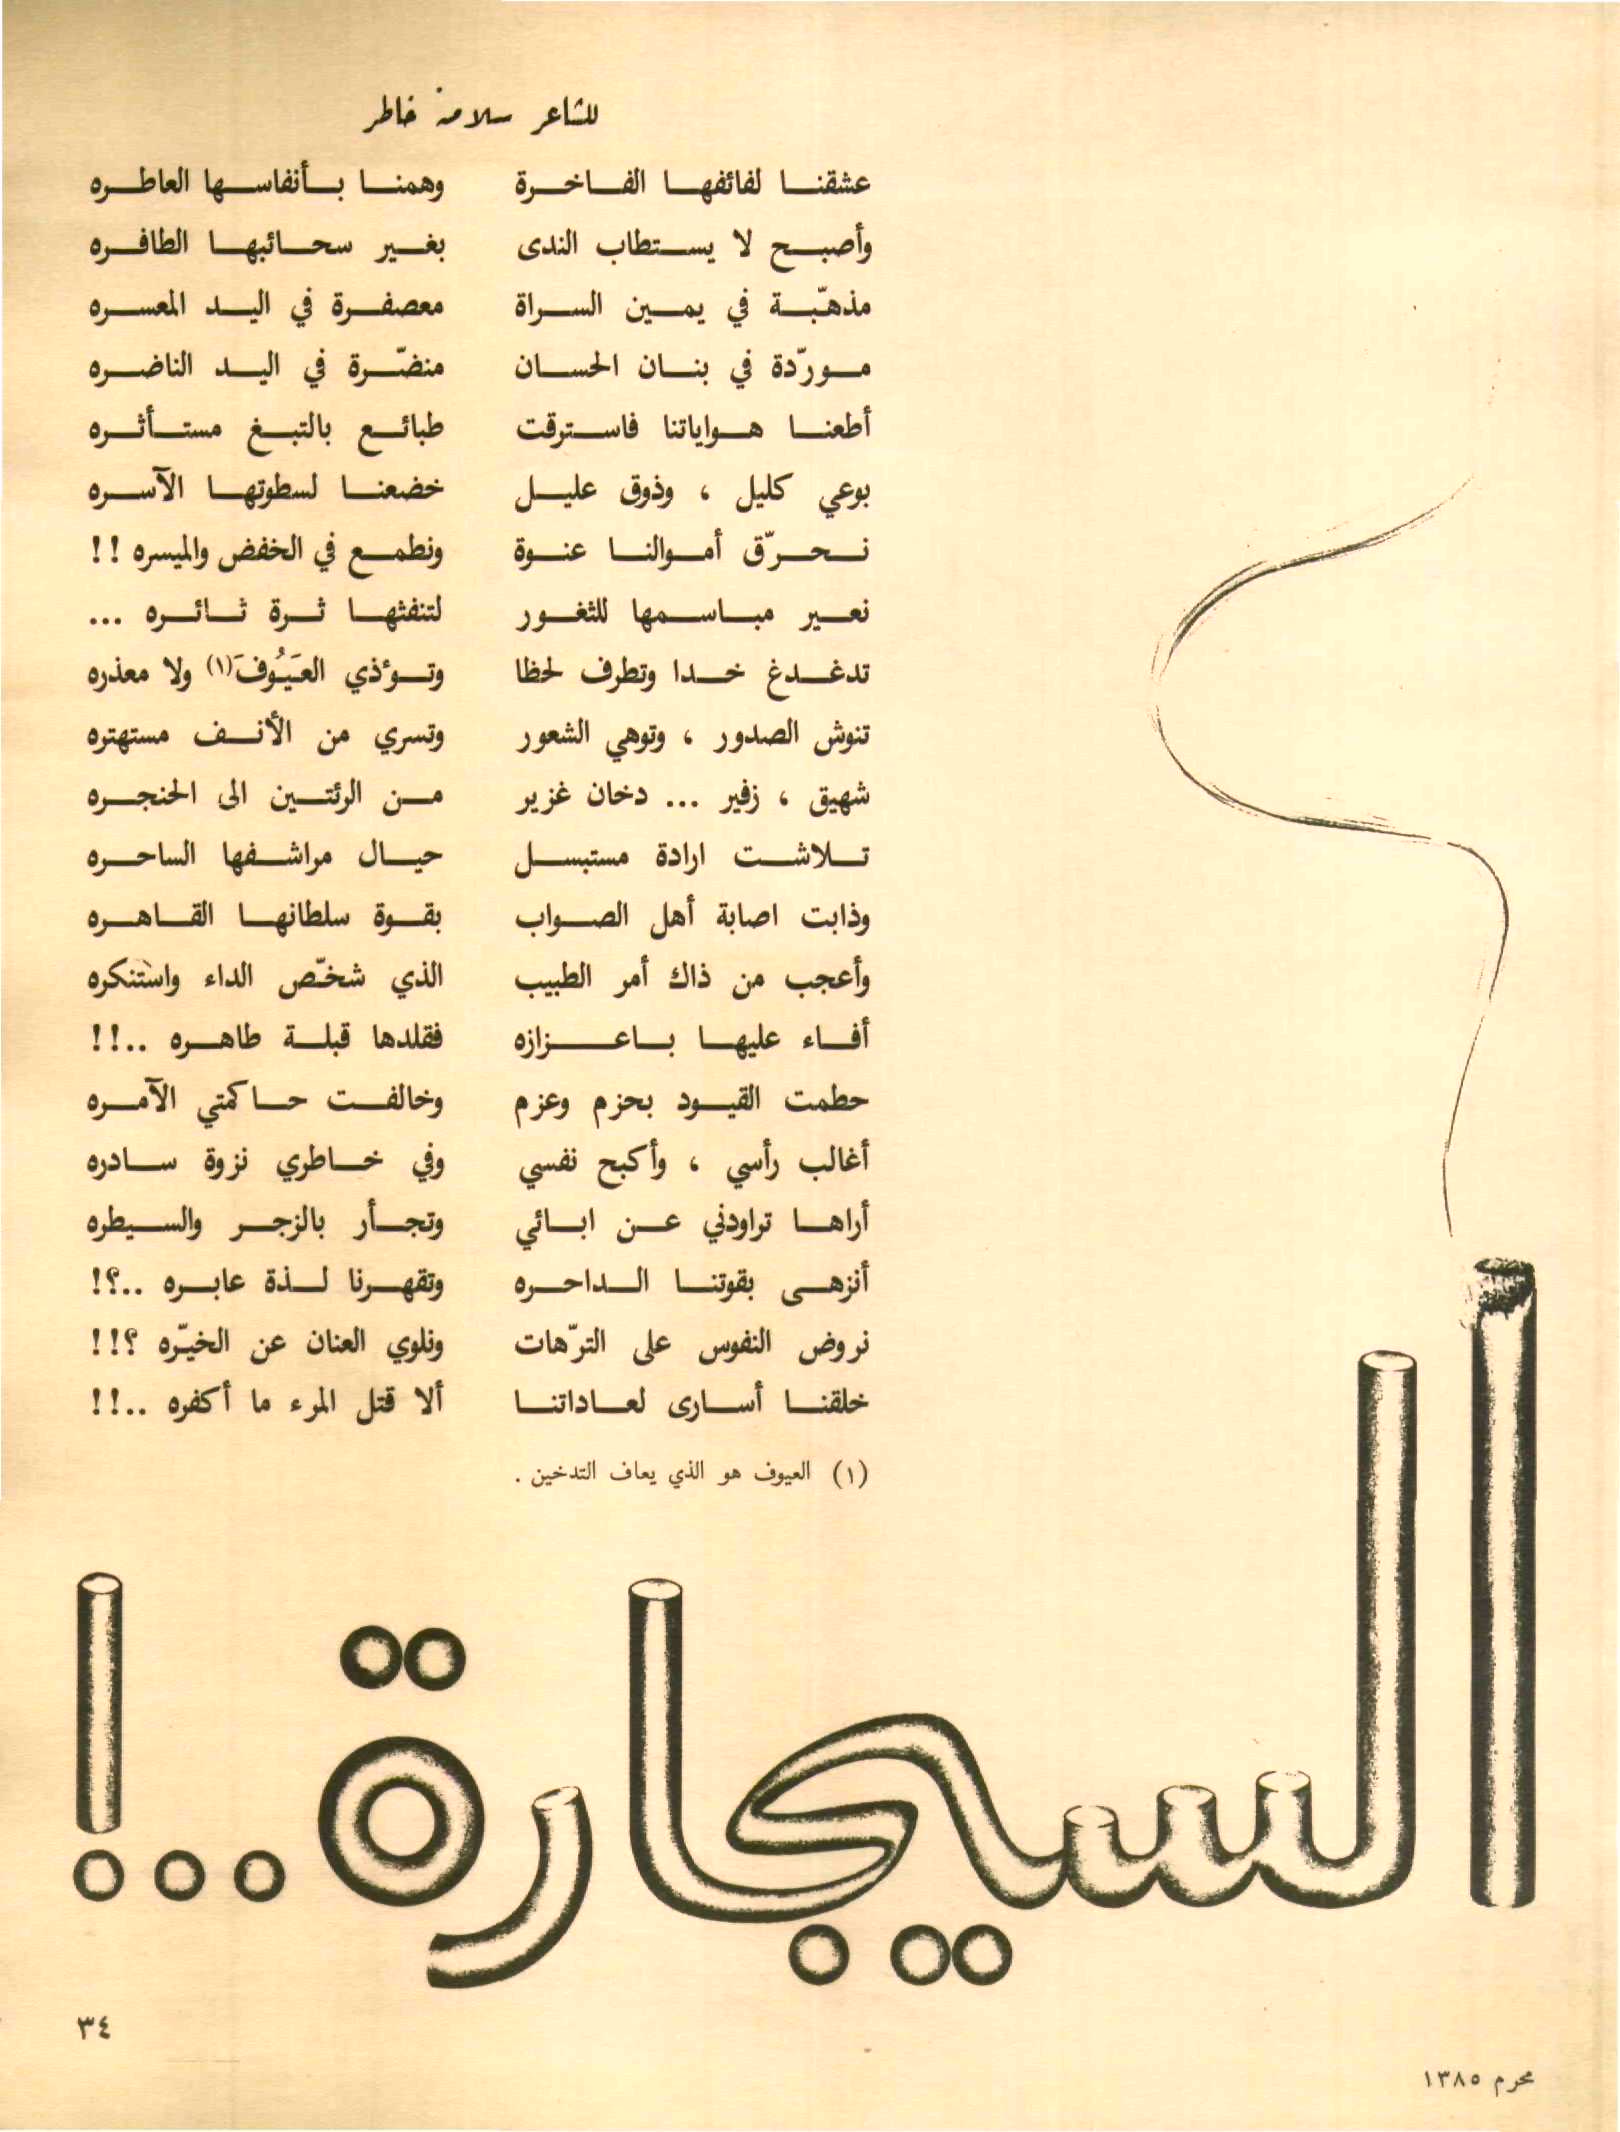 للشاعر سلامة خاطر
عشقنا لفائفها الفاخرة وهمنا بأنفاسها العاطره
وأصبح لا يستطاب الندى بغير سحائبها الطافره
مذهّبة في يمين السراة معصفرة في اليد المعسره
مورّدة في بنان الحسان منضّرة في اليد الناضره
أطعنا هواياتنا فاسترقت طبائع بالتبغ مستأثره
بوعي كليل ، وذوق عليل خضعنا لسطوتها الآسره
نحرّق أموالنا عنوة ونطمع في الخفض والميسره !!
نعير مباسمها للثغور لتنفثها ثرة ثائره ...
تدغدغ خدا وتطرف لحظا وتؤذي العَيُوفَ(١) ولا معذره
تنوش الصدور ، وتوهي الشعور وتسري من الأنف مستهتره
شهيق ، زفير ... دخان غزير من الرئتين الى الحنجره
تلاشت ارادة مستبسل حيال مراشفها الساحره
وذابت اصابة أهل الصواب بقوة سلطانها القاهره
وأعجب من ذاك أمر الطبيب الذي شخّص الداء واستنكره
أفاء عليها باعزازه فقلدها قبلة طاهره ..!!
حطمت القيود بحزم وعزم وخالفت حاكمتي الآمره
أغالب رأسي ، وأكبح نفسي وفي خاطري نزوة سادره
أراها تراودني عن ابائي وتجأر بالزجر والسيطره
أنزهى بقوتنا الداحره وتقهرنا لذة عابره ..؟!
نروض النفوس على الترّهات ونلوي العنان عن الخيّره ؟!!
خلقنا أسارى لعاداتنا ألا قتل المرء ما أكفره ..!!
(١) العيوف هو الذي يعاف التدخين .
السيجارة..!
٣٤
محرم ١٣٨٥